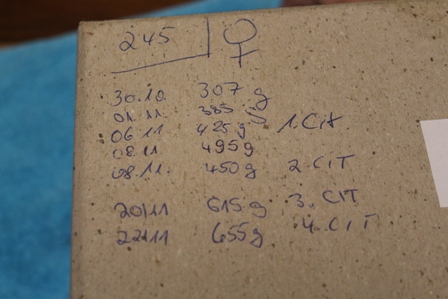 245 ♀
30.10. 307 g
01.11. 385 g
06.11 425 g 1. Cit
08.11 495g
08.11. 450 g 2. CIT
20/11 615 g 3. CIT
2211 655g 4. CIT